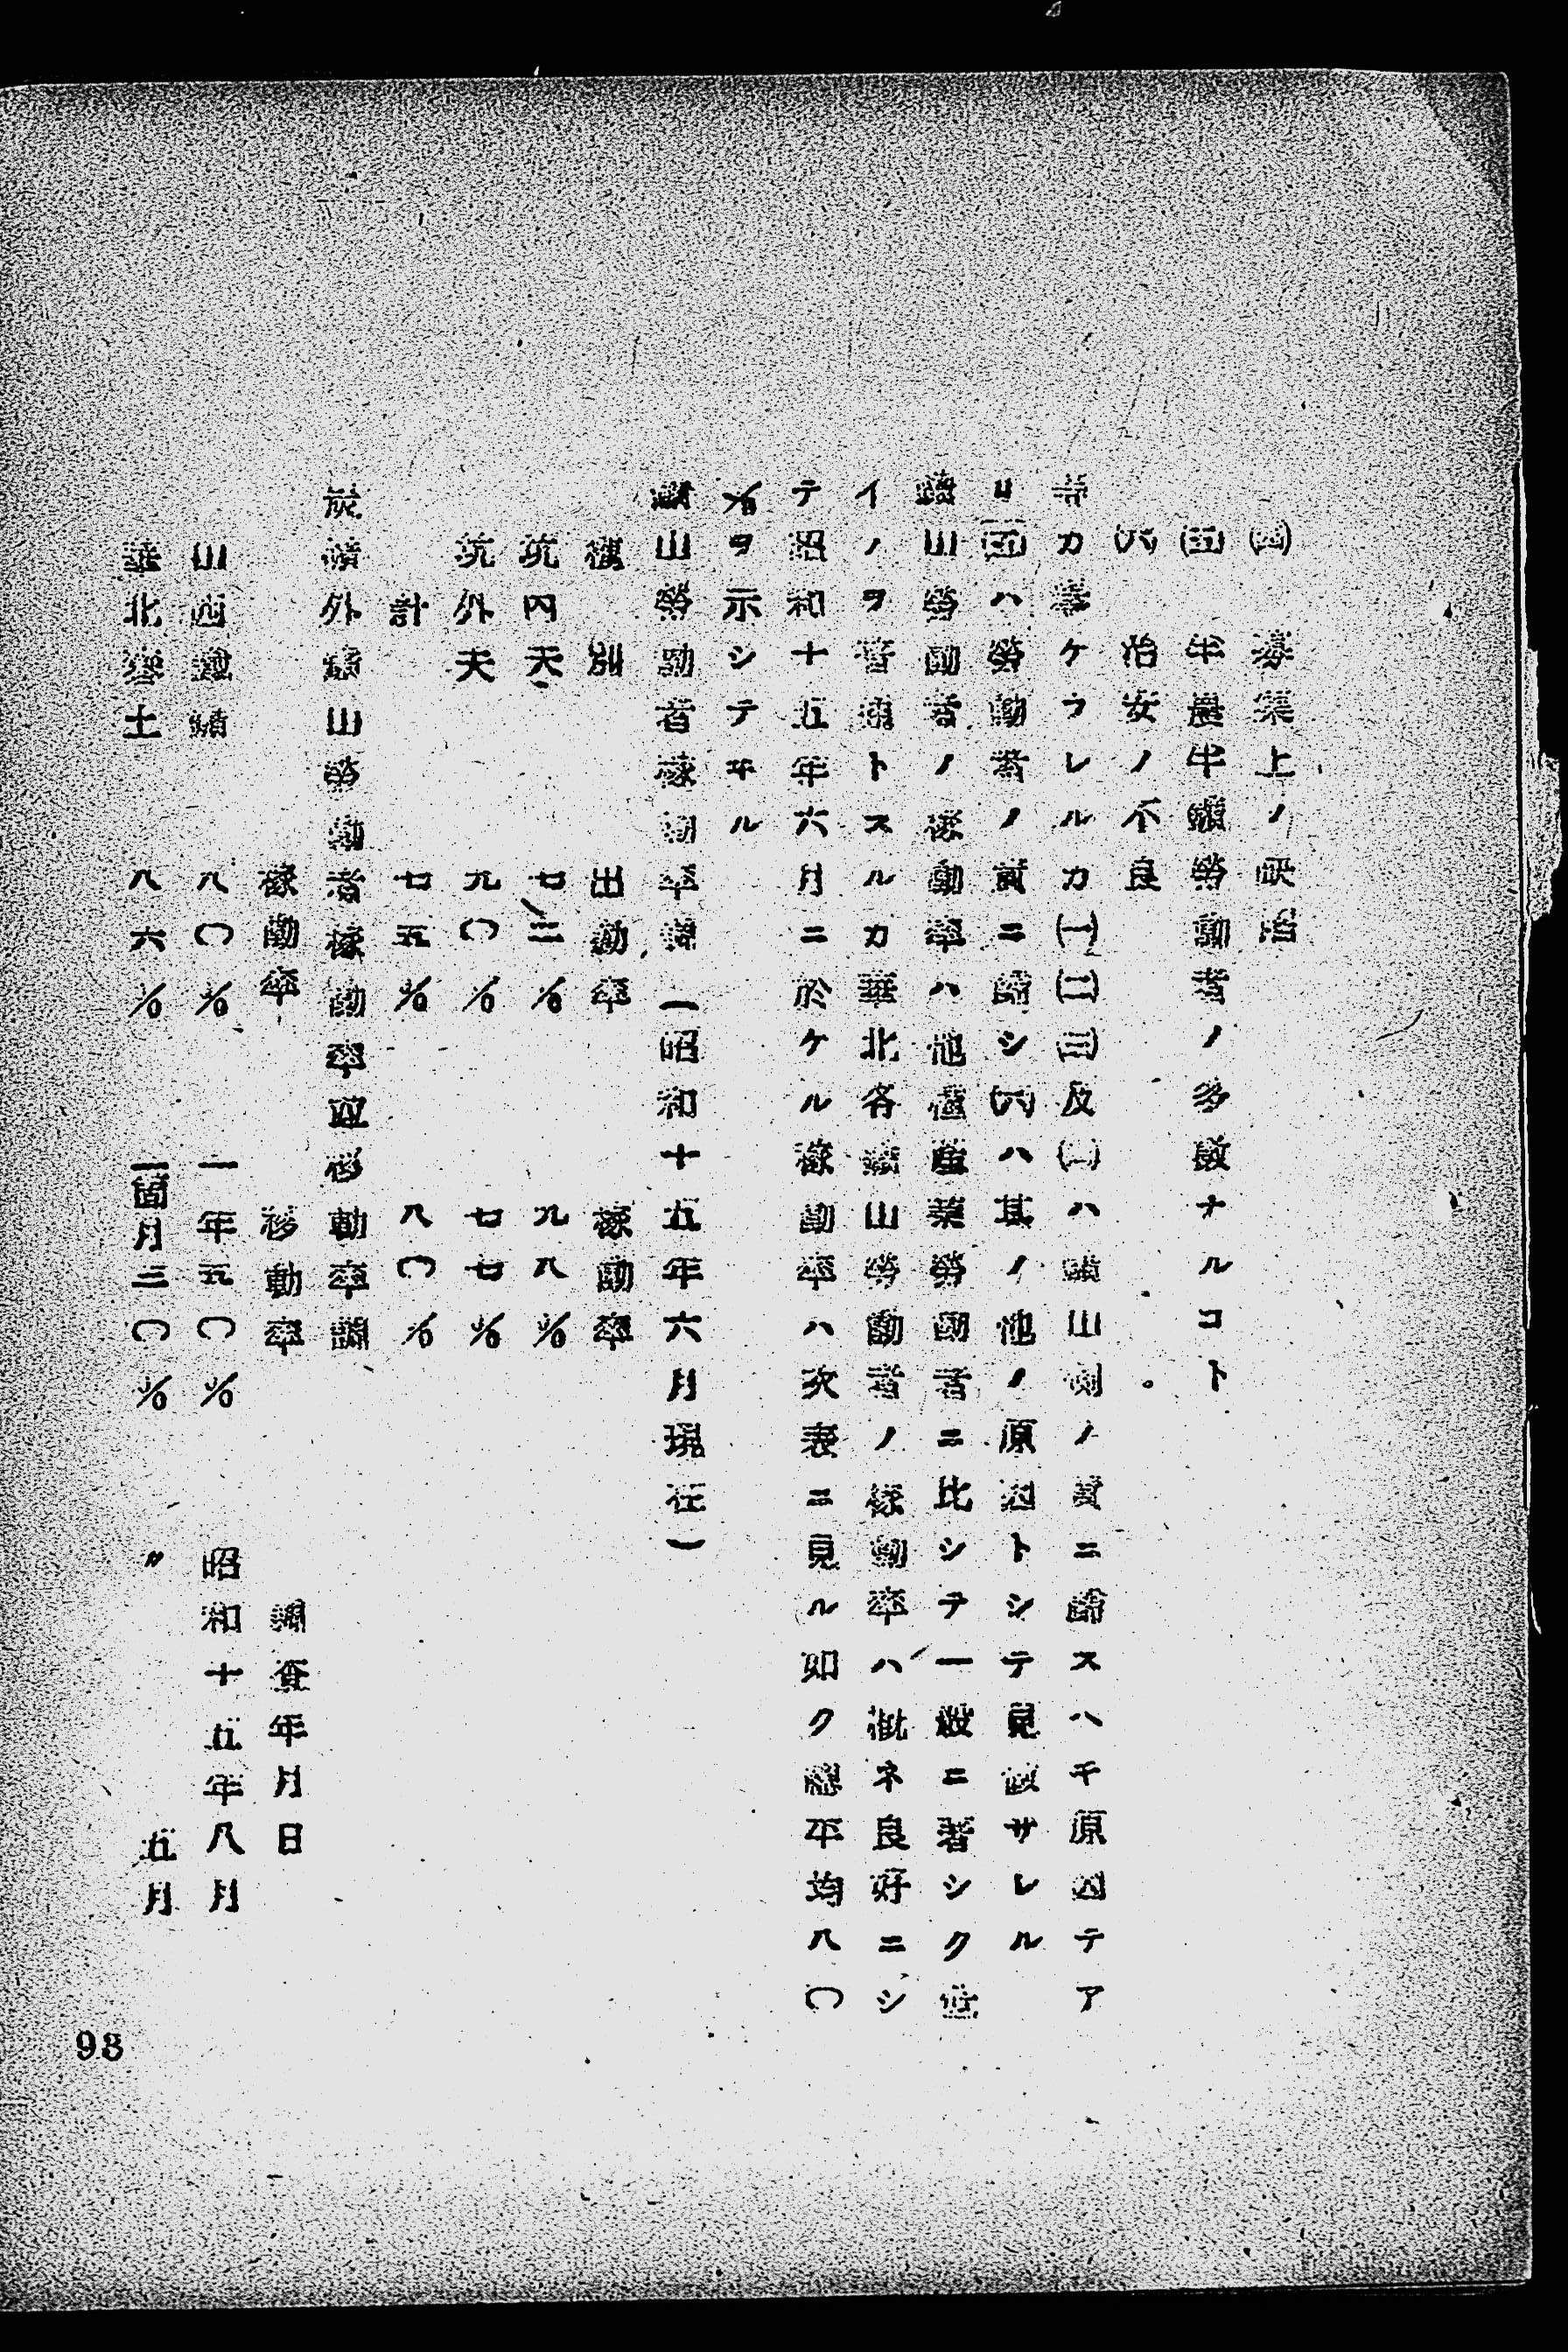 ㈣ 募集上ノ欠陥
㈤ 半農半鑛勞働者ノ多数ナルコト
㈥ 治安ノ不良。
等カ挙ケラレルカ㈠㈡㈢及㈡ハ鑛山側ノ責ニ歸スヘキ原因テア
リ㈤ハ勞働者ノ責ニ歸シ㈥ハ其ノ他ノ原因トシテ見做サレル
鑛山勞働者ノ稼働率ハ他産業勞働者ニ比シテ一般ニ著シク低
イノヲ普通トスルカ華北各鑛山勞働者ノ稼働率ハ概ネ良好ニシ
テ昭和十五年六月ニ於ケル稼働率ハ次表ニ見ル如ク總平均八〇
%ヲ示シテヰル
鑛山勞働者稼働率調(昭和十五年六月現在)
種別 出勤率 稼働率
坑内夫 七三% 九八%
坑外夫 九〇% 七七%
計 七五% 八〇%
炭礦外鑛山勞働者稼働率並移動率調
稼働率 移動率 調査年月日
山西 八〇% 一年五〇% 昭和十五年八月
華北礬土 八六% 一箇月三〇% 〃 五月
98